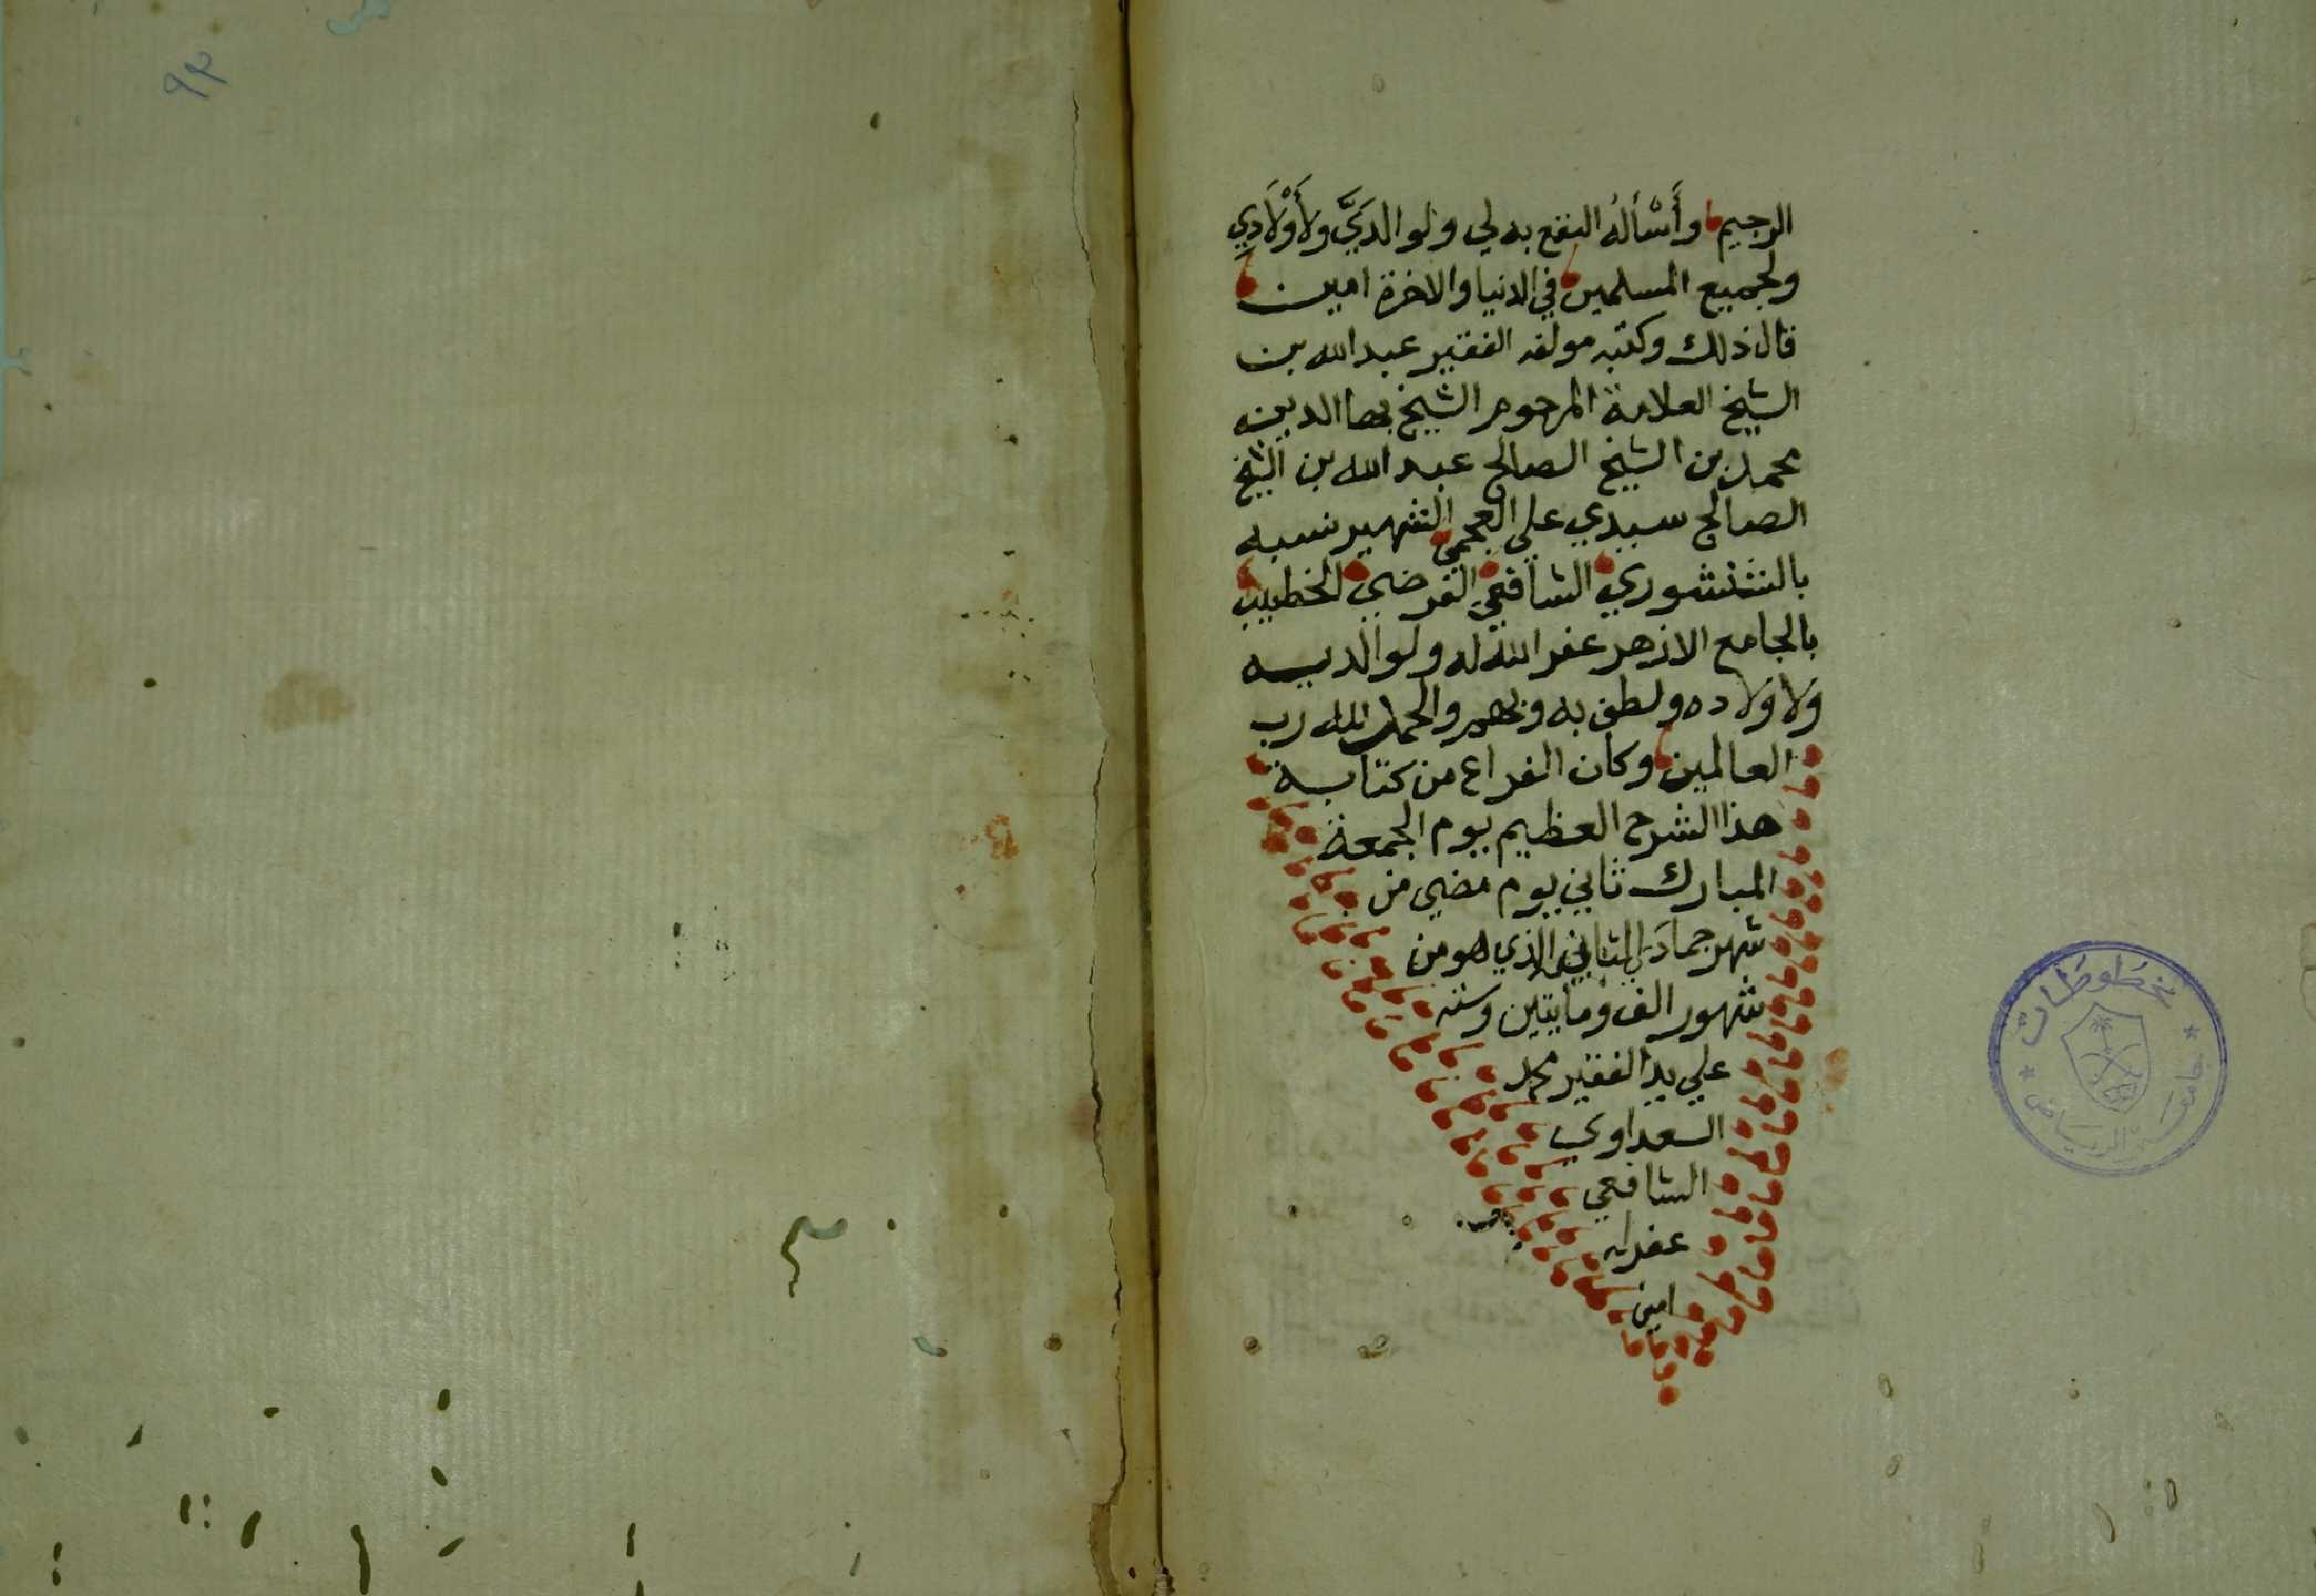 الرحيم وأَسْأَلُه النفع به لي ولوالدَيَّ ولأَوْلَادِي
ولجميع المسلمين في الدنيا والاخرة امين
قال ذلك وكتبه مولفه الفقير عبد الله بن
الشيخ العلامة المرحوم الشيخ بها الدين
محمد بن الشيخ الصالح عبد الله بن الشيخ
الصالح سيدي علي العجمي الشهير نسبه
بالشنشوري الشافعي الفرضي الخطيب
بالجامع الازهر غفر الله له ولوالديه
ولاولاده ولطف به وبهم والحمد لله رب
العالمين وكان الفراغ من كتابة
هذا الشرح العظيم يوم الجمعة
المبارك ثاني يوم مضي من
شهر جماد الثاني الذي هو من
شهور الف ومايتين وسته
علي يد الفقير محمد
السعداوي
الشافعي
غفر له
امين
مخطوطات
جامعة الرياض
٩٣